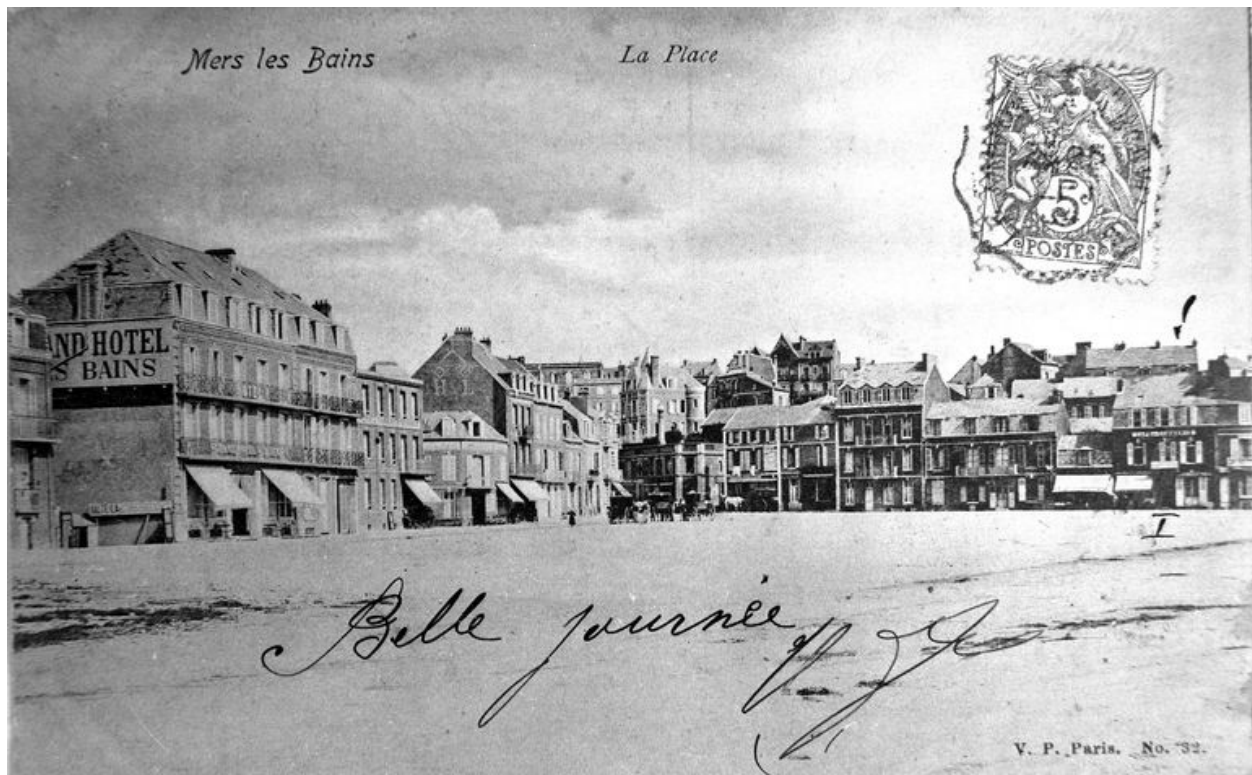 Mers les Bains
La Place
5c
POSTES
AND HOTEL
S BAINS
I
Belle journée
V. P. Paris. No. 32.